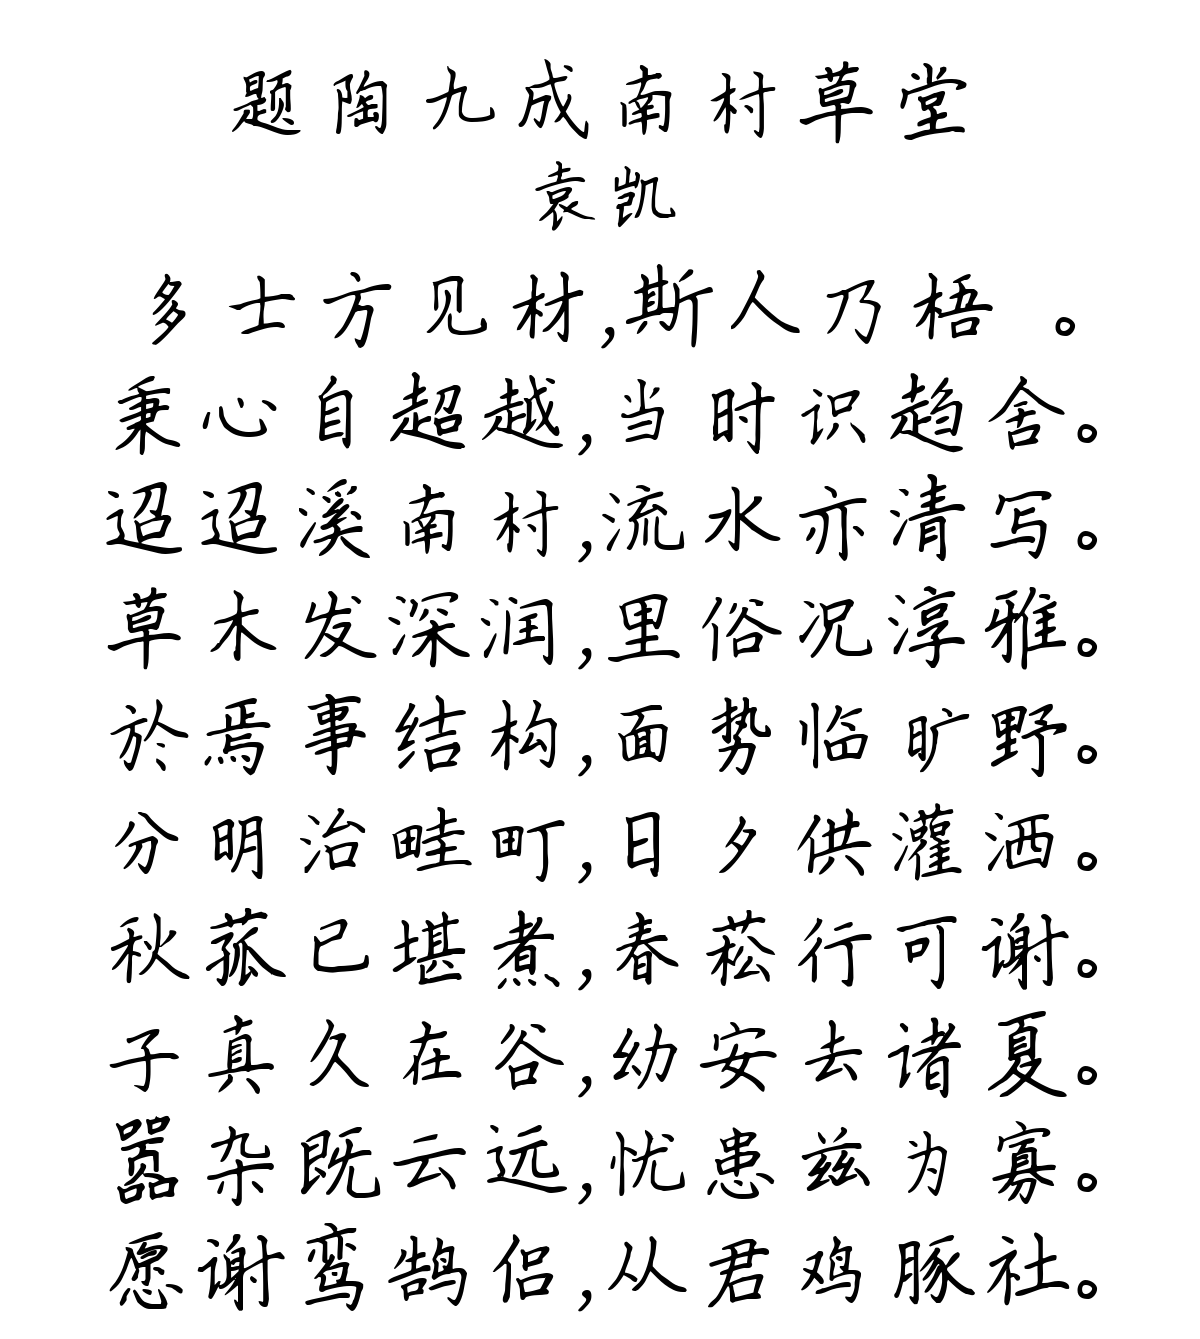 题陶九成南村草堂
袁凯
多士方见材,斯人乃梧 。
秉心自超越,当时识趋舍。
迢迢溪南村,流水亦清写。
草木发深润,里俗况淳雅。
於焉事结构,面势临旷野。
分明治畦町,日夕供灌洒。
秋菰已堪煮,春菘行可谢。
子真久在谷,幼安去诸夏。
嚣杂既云远,忧患兹为寡。
愿谢鸾鹄侣,从君鸡豚社。